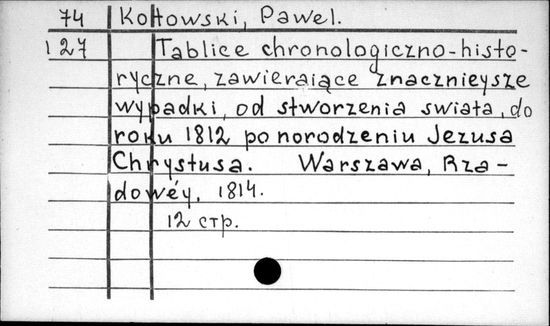 74 Kołłowski, Paweł.
127 Tablice chronologiczno-histo-
ryczne, zawieraiące znacznieysze
wypadki, od stworzenia swiata, do
roku 1812 po norodzeniu Jezusa
Chrystusa. Warszawa, Rzą-
dowéy, 1814.
12 стр.